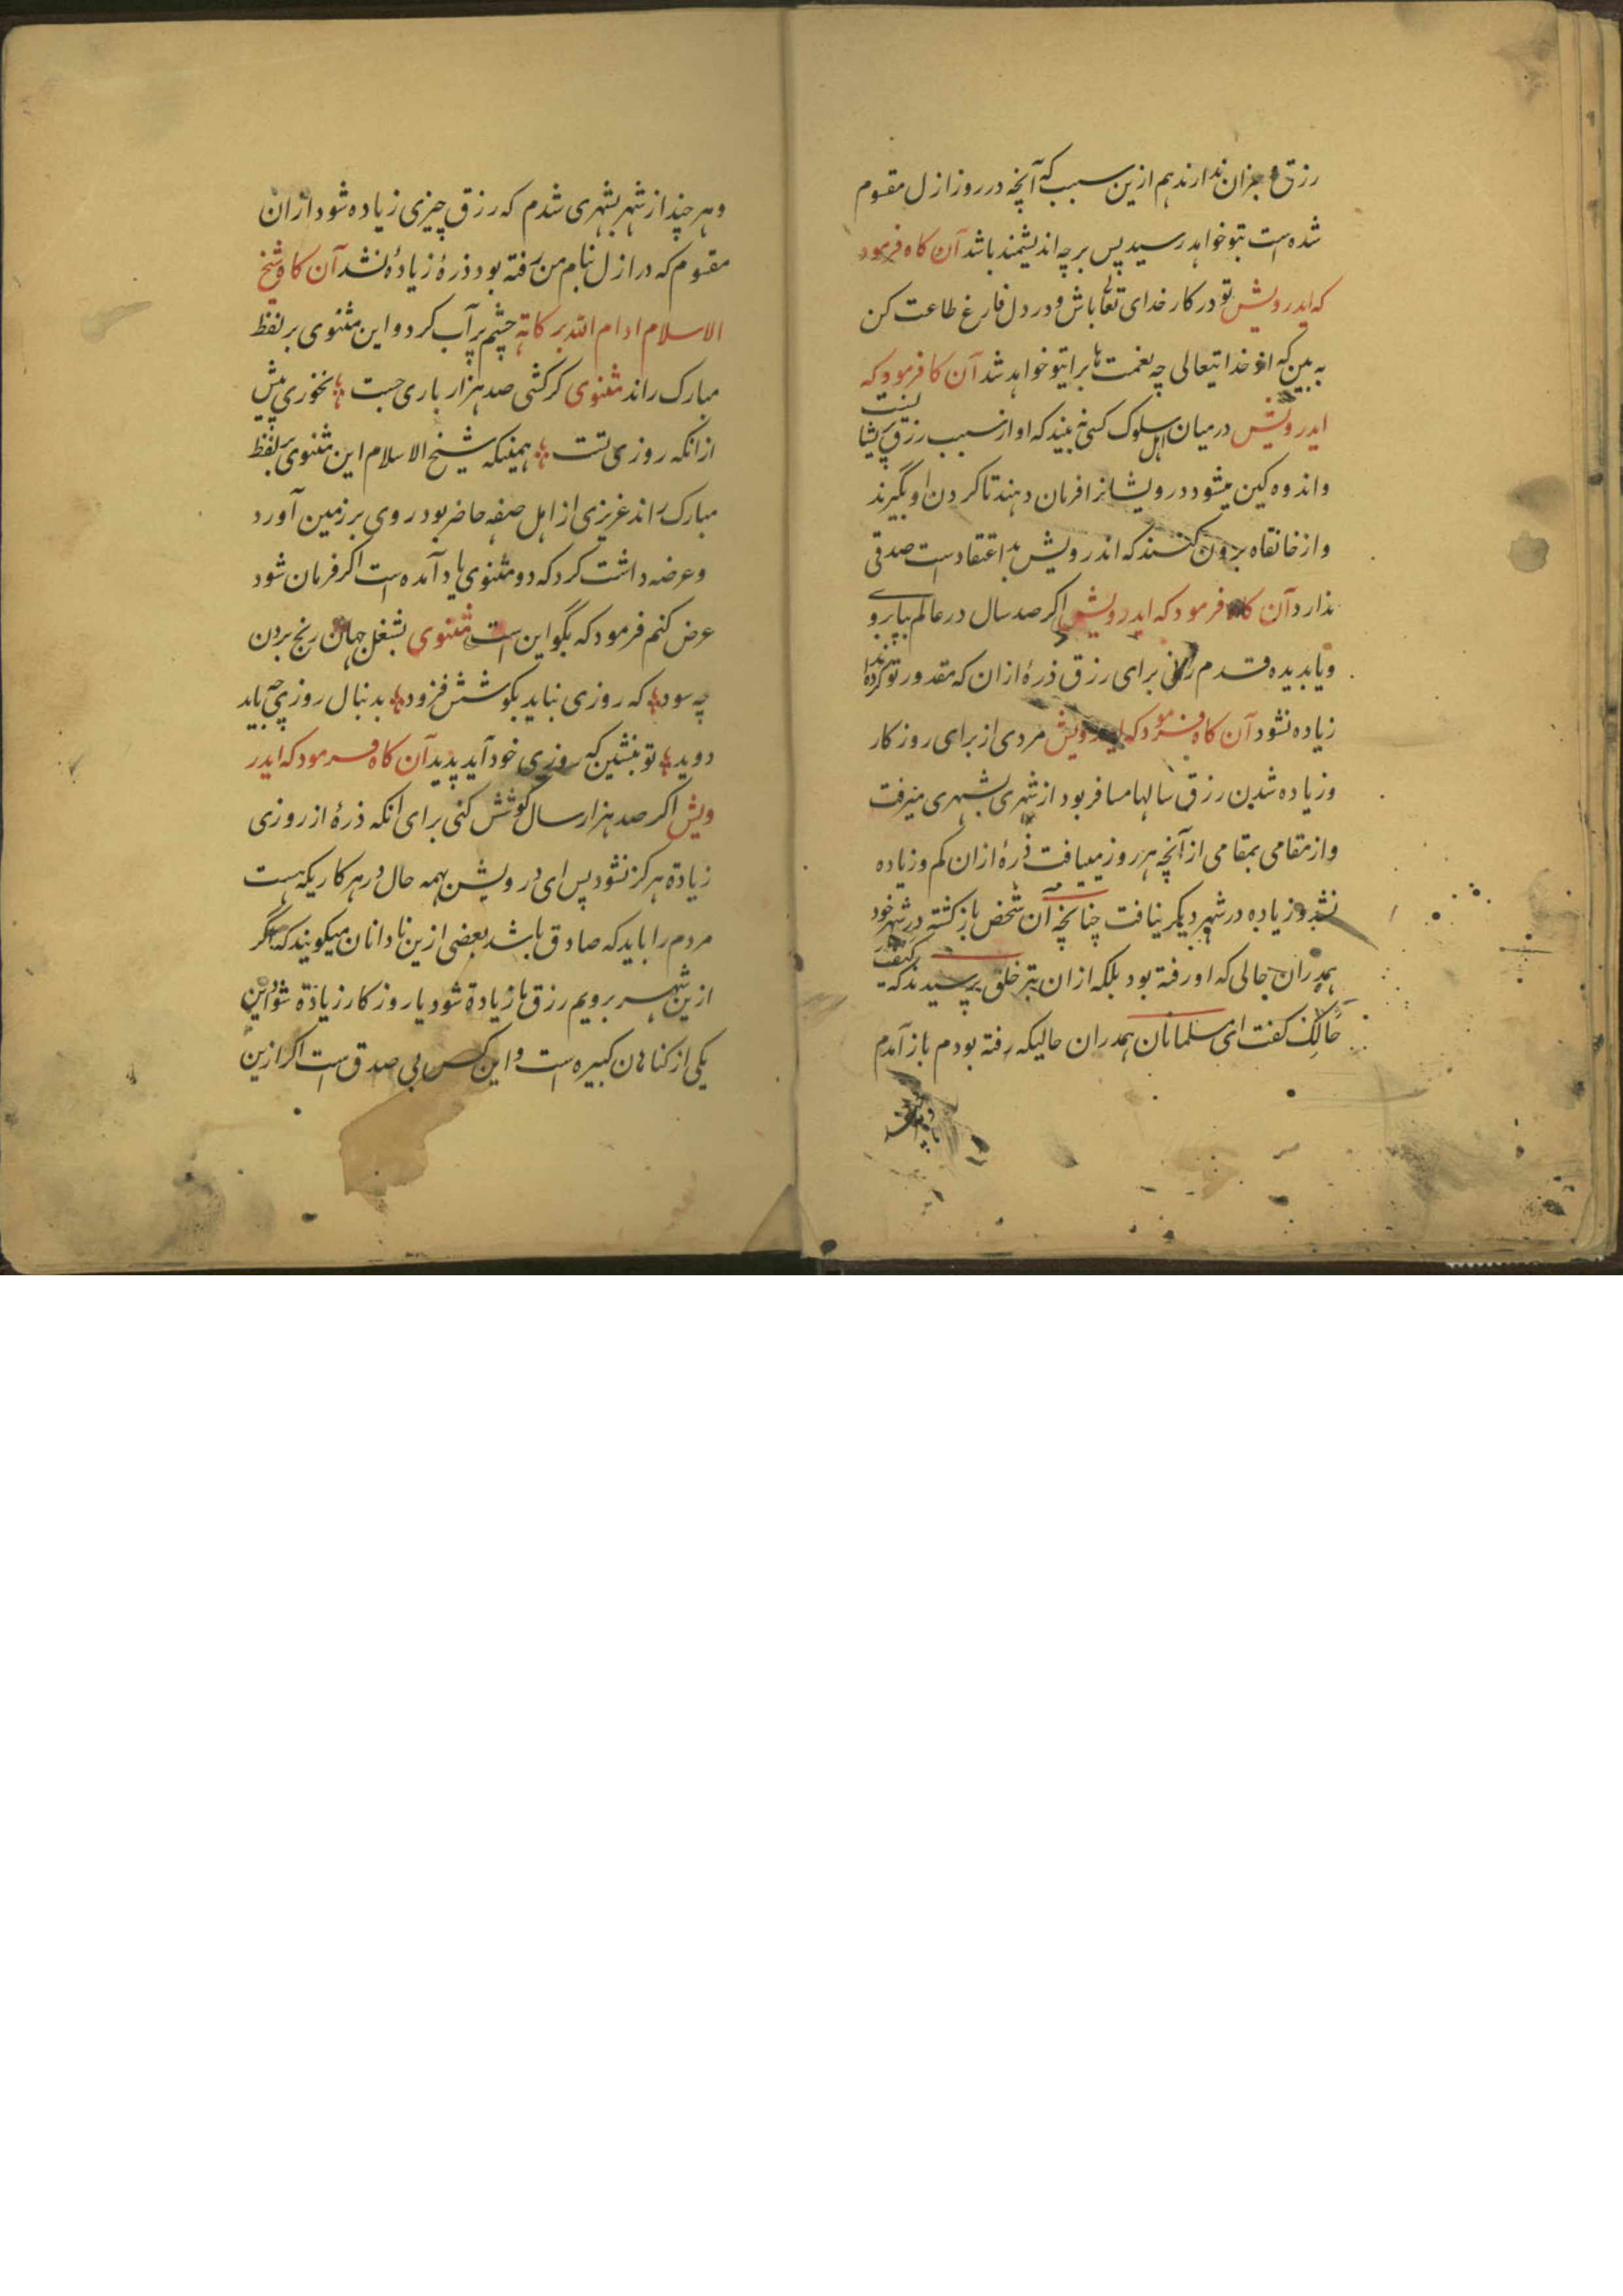 رزق و جز آن ندارند هم ازین سبب که آنچه در روز ازل مقسوم
شده است بتو خواهد رسید پس بر چه اندیشمند باشد آن کاه فرمود
که ایدرویش تو در کار خدای تعالی باش و در دل فارغ طاعت کن
به بین که از خدایتعالی چه نعمت ها برایتو خواهد شد آن کا فرمود که
ایدرویش درمیان اهل سلوک کسی نه بیند که او از سبب رزق پریشا
و اندوه کین میشود درویشانرا فرمان دهند تا کردن او بگیرند
و از خانقاه برون کنند که اندرویش بد اعتقاد است صدقی
ندارد آن کاه فرمود که ایدرویش اکر صد سال در عالم بپا بروی
و یا بدیده قدم رانی برای رزق ذرهٔ ازان که مقدور تو کرده اند
زیاده نشود آن کاه فرمود که ایدرویش مردی از برای روزکار
و زیاده شدن رزق سالها مسافر بود از شهری بشهری میرفت
و از مقامی بمقامی از آنچه هر روز مییافت ذرهٔ ازان کم و زیاده
نشد و زیاده در شهر دیکر نیافت چنانچه آن شخص باز کشته در شهر خود
همدران حالی که او رفته بود بلکه ازان بتر خلق پرسیدند که کیف
حالک کفت ای مسلمانان همدران حالیکه رفته بودم باز آمدم
و هر چند از شهر بشهری شدم که رزق چیزی زیاده شود ازان
مقسوم که در ازل بنام من رفته بود ذرهٔ زیاده نشد آن کاه شیخ
الاسلام ادام الله برکاته چشم پر آب کرد و این مثنوی بر لفظ
مبارک راند مثنوی کر کشی صد هزار باری جست نخوری پیش
ازانکه روزی تست همینکه شیخ الاسلام این مثنوی بر لفظ
مبارک راند عزیزی از اهل صفه حاضر بود روی بر زمین آورد
و عرضه داشت کرد که دو مثنوی یاد آمده است اکر فرمان شود
عرض کنم فرمود که بگو این است مثنوی بشغل جهان رنج بردن
چه سود که روزی نباید بکوشش فزود بدنبال روزی چه باید
دوید تو بنشین که روزی خود آید پدید آن کاه فرمود که ایدر
ویش اکر صد هزار سال کوشش کنی برای انکه ذرهٔ از روزی
زیادة هرکز نشود پس ای درویش بهمه حال در هر کاریکه هست
مردم را باید که صادق باشد بعضی ازین نادانان میکویند که اگر
ازین شهر برویم رزق ما زیادة شود یا روزکار زیادة شود این
یکی از کناهان کبیره است و این کس بی صدق است اکر ازین